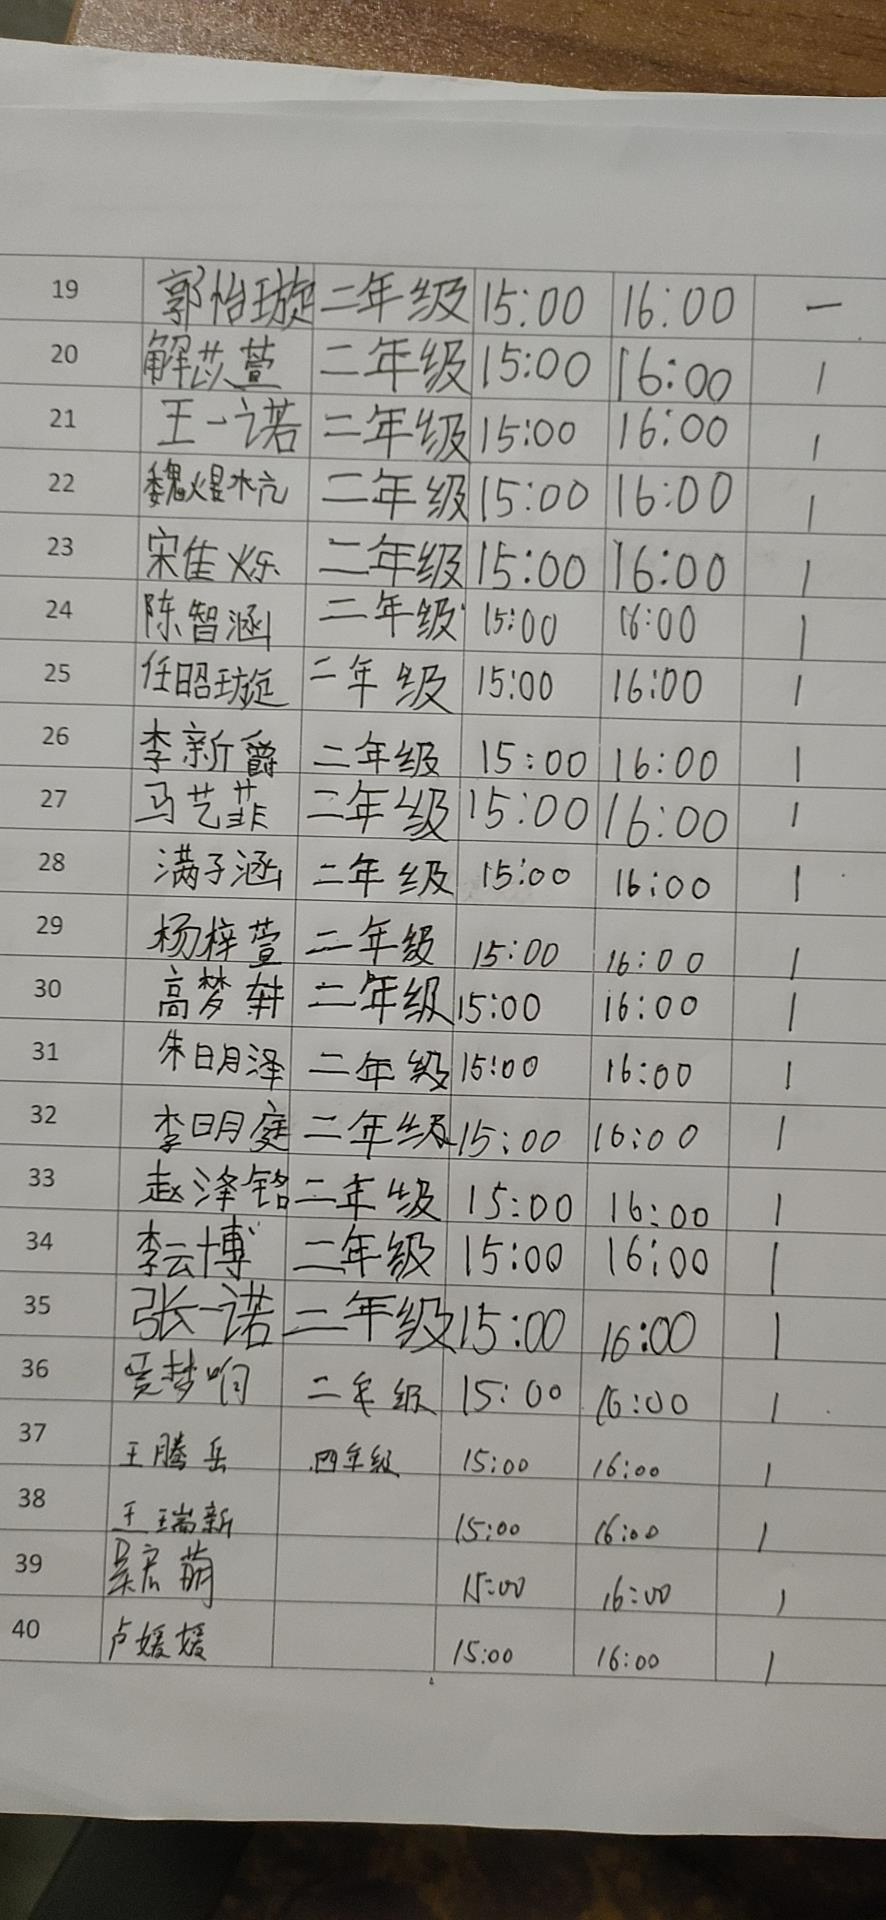 19 郭怡璇 二年级 15:00 16:00 一
20 解苡萱 二年级 15:00 16:00 1
21 王一诺 二年级 15:00 16:00 1
22 魏煜杭 二年级 15:00 16:00 1
23 宋佳烁 二年级 15:00 16:00 1
24 陈智涵 二年级 15:00 16:00 1
25 任昭璇 二年级 15:00 16:00 1
26 李新爵 二年级 15:00 16:00 1
27 马艺菲 二年级 15:00 16:00 1
28 满子涵 二年级 15:00 16:00 1
29 杨梓萱 二年级 15:00 16:00 1
30 高梦 二年级 15:00 16:00 1
31 朱明泽 二年级 15:00 16:00 1
32 李明庭 二年级 15:00 16:00 1
33 赵泽铭 二年级 15:00 16:00 1
34 李云博 二年级 15:00 16:00 1
35 张一诺 二年级 15:00 16:00 1
36 梦 二年级 15:00 16:00 1
37 王腾岳 四年级 15:00 16:00 1
38 王瑞新 15:00 16:00 1
39 吴宏萌 15:00 16:00 1
40 卢媛媛 15:00 16:00 1